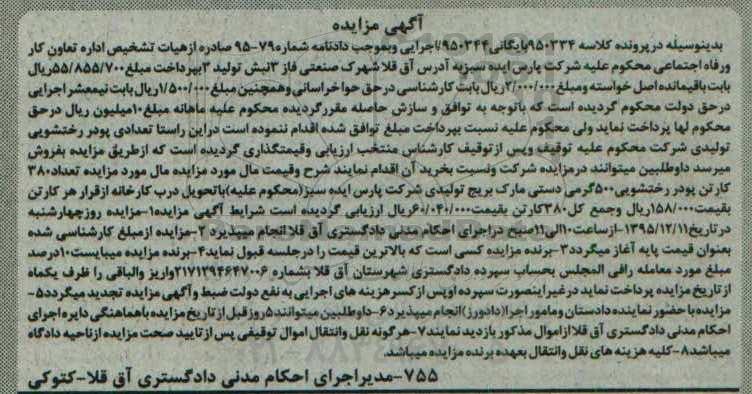 آگهی مزایده
بدینوسیله در پرونده کلاسه ۹۵۰۳۳۴بایگانی۹۵۰۳۴۴اجرایی وبموجب دادنامه شماره۷۹-۹۵ صادره ازهیات تشخیص اداره تعاون کار
ورفاه اجتماعی محکوم علیه شرکت پارس ایده سبزبه آدرس آق قلاشهرک صنعتی فاز ۳نبش تولید ۳بپرداخت مبلغ۵۵/۸۵۵/۷۰۰ریال
بابت باقیمانده اصل خواسته ومبلغ۲/۰۰۰/۰۰۰ریال بابت کارشناسی درحق حوا خراسانی وهمچنین مبلغ۱/۵۰۰/۰۰۰ریال بابت نیمعشر اجرایی
درحق دولت محکوم گردیده است که باتوجه به توافق و سازش حاصله مقررگردیده محکوم علیه ماهانه مبلغ۱۰میلیون ریال درحق
محکوم لها پرداخت نماید ولی محکوم علیه نسبت بپرداخت مبلغ توافق شده اقدام ننموده است دراین راستا تعدادی پودر رختشویی
تولیدی شرکت محکوم علیه توقیف وپس ازتوقیف کارشناس منتخب ارزیابی وقیمتگذاری گردیده است که ازطریق مزایده بفروش
میرسد داوطلبین میتوانند درمزایده شرکت ونسبت بخرید آن اقدام نمایند شرح وقیمت مال مورد مزایده مال مورد مزایده تعداد۳۸۰
کارتن پودر رختشویی۵۰۰گرمی دستی مارک بریج تولیدی شرکت پارس ایده سبز(محکوم علیه)باتحویل درب کارخانه ازقرار هر کارتن
بقیمت۱۵۸/۰۰۰ریال وجمع کل۳۸۰کارتن بقیمت۶۰/۰۴۰/۰۰۰ریال ارزیابی گردیده است شرایط آگهی مزایده۱-مزایده روزچهارشنبه
در تاریخ۱۳۹۵/۱۲/۱۱-ازساعت۱۰الی۱۱صبح دراجرای احکام مدنی دادگستری آق قلا انجام میپذیرد ۲-مزایده ازمبلغ کارشناسی شده
بعنوان قیمت پایه آغاز میگردد۳-برنده مزایده کسی است که بالاترین قیمت را درجلسه قبول نماید۴-برنده مزایده میبایست۱۰درصد
مبلغ مورد معامله رافی المجلس بحساب سپرده دادگستری شهرستان آق قلا بشماره ۲۱۷۱۲۹۴۶۴۷۰۰۶واریز والباقی را ظرف یکماه
از تاریخ مزایده پرداخت نماید درغیراینصورت سپرده اوپس ازکسرهزینه های اجرایی به نفع دولت ضبط وآگهی مزایده تجدید میگردد۵-
مزایده باحضور نماینده دادستان ومامور اجرا(دادورز)انجام میپذیرد۶-داوطلبین میتوانند۵روزقبل ازتاریخ مزایده باهماهنگی دایره اجرای
احکام مدنی دادگستری آق قلاازاموال مذکور بازدید نمایند۷-هرگونه نقل وانتقال اموال توقیفی پس ازتایید صحت مزایده ازناحیه دادگاه
میباشد۸-کلیه هزینه های نقل وانتقال بعهده برنده مزایده میباشد.
۷۵۵-مدیراجرای احکام مدنی دادگستری آق قلا-کتوکی